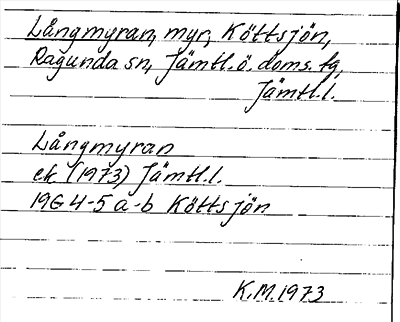 Långmyran, myr, Köttsjön,
Ragunda sn, Jämtl.ö. doms. fg,
Jämtl.l.
Långmyran
ek (1973) Jämtl.l.
19G 4-5 a-b Köttsjön
K.M.1973